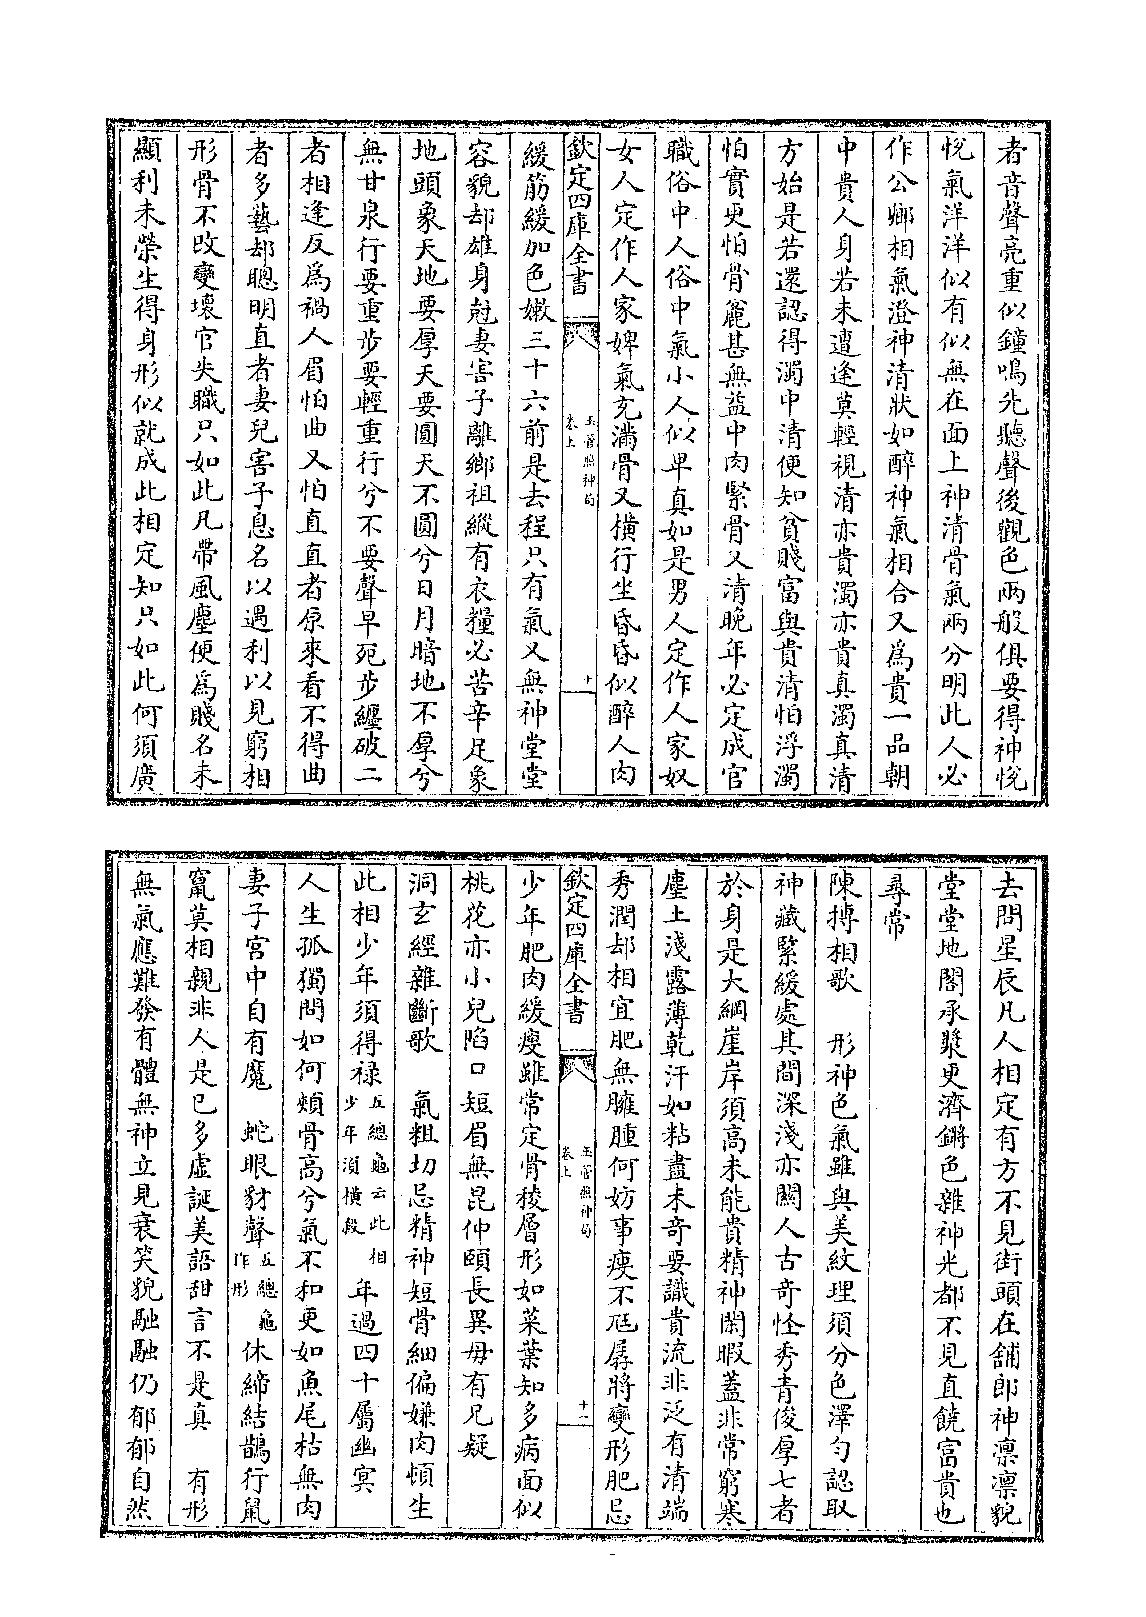 者音聲亮重似鐘鳴先聽聲後觀色兩般俱要得神悅
悅氣洋洋似有似無在面上神清骨氣兩分明此人必
作公卿相氣澄神清狀如醉神氣相合又爲貴一品朝
中貴人身若未遭逢莫輕視清亦貴濁亦貴真濁真清
方始是若還認得濁中清便知貧賤富與貴清怕浮濁
怕實更怕骨麄甚無益中肉緊骨又清晚年必定成官
職俗中人俗中氣小人似卑真如是男人定作人家奴
女人定作人家婢氣充滿骨又横行坐昏昏似醉人肉
欽定四庫全書
玉管照神局
卷上
十
緩筋緩加色嫩三十六前是去程只有氣又無神堂堂
容貌却雄身尅妻害子離鄉祖縱有衣糧必苦辛足象
地頭象天地要厚天要圓天不圓兮日月暗地不厚兮
無甘泉行要重步要輕重行兮不要聲早死步纏破二
者相逢反爲禍人眉怕曲又怕直直者原來看不得曲
者多藝却聰明直者妻兒害子息名以遇利以見窮相
形骨不改變壞官失職只如此凡帶風塵便爲賤名未
顯利未榮生得身形似就成此相定知只如此何須廣
去問星辰凡人相定有方不見街頭在舖郎神凛凛貌
堂堂地閣承漿更濟鏘色雜神光都不見直饒富貴也
尋常
陳摶相歌　形神色氣雖與美紋理須分色澤勻認取
神藏緊緩處其間深淺亦關人古奇怪秀青俊厚七者
於身是大綱崖岸須高未能貴精神閑暇蓋非常窮寒
塵土淺露薄乾汗如粘盡未奇要識貴流非泛有清端
秀潤却相宜肥無臃腫何妨事瘦不尫孱將變形肥忌
欽定四庫全書
玉管照神局
卷上
十一
少年肥肉緩瘦雖常定骨稜層形如菜葉知多病面似
桃花亦小兒陷口短眉無昆仲頤長異母有兄疑
洞玄經雜斷歌　氣粗切忌精神短骨細偏嫌肉頓生
此相少年須得禄五總龜云此相少年須横毀年過四十屬幽冥
人生孤獨問如何頰骨高兮氣不和更如魚尾枯無肉
妻子宮中自有魔　蛇眼豺聲五總龜作形休締結鵲行鼠
竄莫相親非人是已多虛誕美語甜言不是真　有形
無氣應難發有體無神立見衰笑貌融融仍郁郁自然